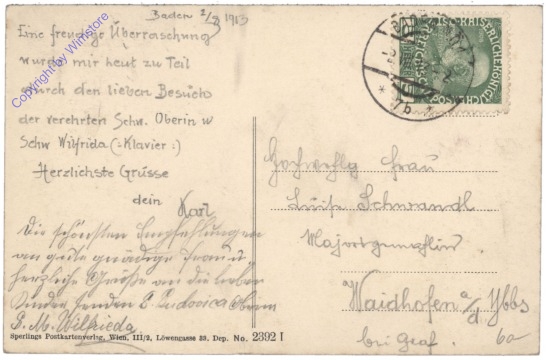 Baden 2/8 1913
Eine freudige Überraschung
wurde mir heut zu Teil
durch den lieben Besuch
der verehrten Schw. Oberin u
Schw Wilfrida (:Klavier:)
Herzlichste Grüsse
dein Karl
Die schönsten Empfehlungen
an gute gnädige Frau u
herzliche Grüße an die lieben
Kinder senden S. Ludovica Oberin
S. M. Wilfrieda
Sperlings Postkartenverlag, Wien, III/2, Löwengasse 33, Dep. No. 2392 I
Hochwohlg Frau
Luise Schwandl
Waidhofen a/d Ybbs
bei Graf.
60
Copyright by Wimstore